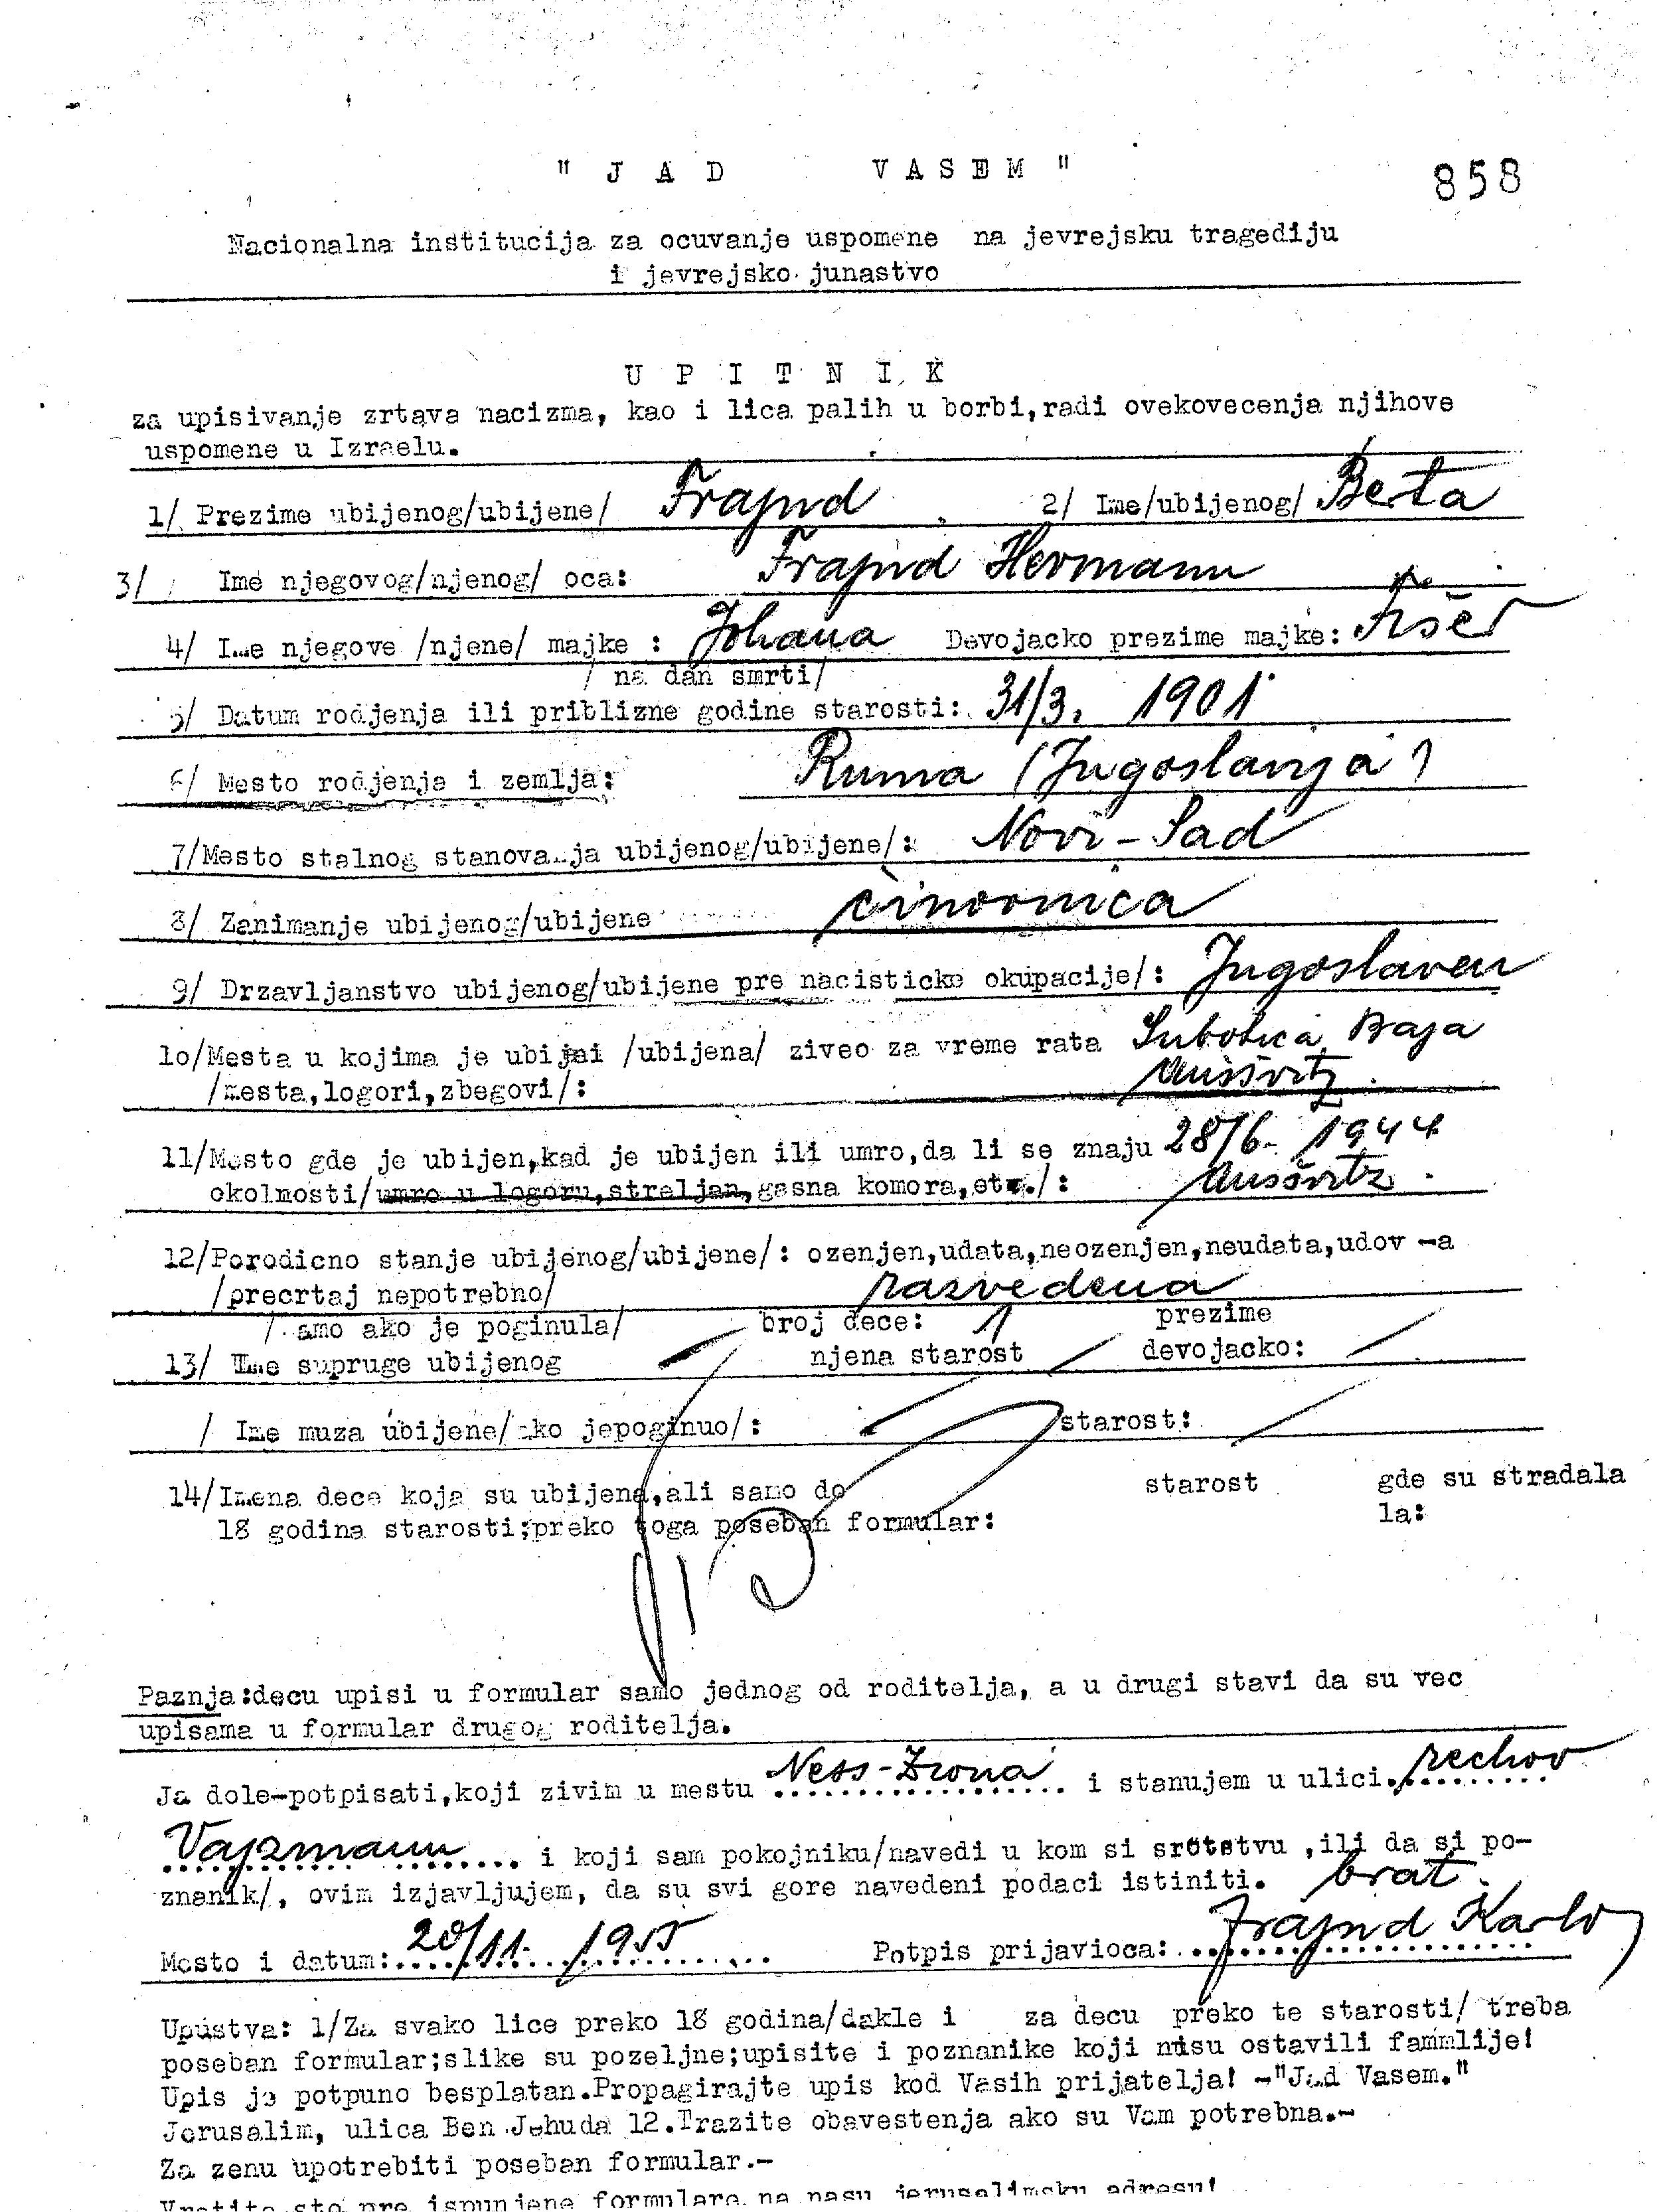 "JAD VASEM"
858
Nacionalna institucija za ocuvanje uspomene na jevrejsku tragediju
i jevrejsko junastvo
UPITNIK
za upisivanje zrtava nacizma, kao i lica palih u borbi, radi ovekovecenja njihove
uspomene u Izraelu.
1/ Prezime ubijenog/ubijene/ Frajnd 2/ Ime/ubijenog/ Berta
3/ Ime njegovog/njenog/ oca: Frajnd Hermann
4/ Ime njegove /njene/ majke : Johana Devojacko prezime majke:
/ na dan smrti/
5/ Datum rodjenja ili priblizne godine starosti: 31/3. 1901
6/ Mesto rodjenja i zemlja: Ruma (Jugoslavija)
7/Mesto stalnog stanovanja ubijenog/ubijene/: Novi-Sad
8/ Zanimanje ubijenog/ubijene činovnica
9/ Drzavljanstvo ubijenog/ubijene pre nacisticke okupacije/: Jugoslaven
10/Mesta u kojima je ubijeni /ubijena/ ziveo za vreme rata Subotica, Baja
/mesta,logori,zbegovi/: Aušvitz.
11/Mesto gde je ubijen,kad je ubijen ili umro,da li se znaju 28/6. 1944
okolnosti/umro u logoru,streljan,gasna komora,etc./: Aušvitz.
12/Porodicno stanje ubijenog/ubijene/: ozenjen,udata,neozenjen,neudata,udov -a
/precrtaj nepotrebno/ razvedena
/ amo ako je poginula/ broj dece: 1 prezime
13/ Ime supruge ubijenog njena starost devojacko:
/ Ime muza ubijene/ako jepoginuo/: starost:
14/Imena dece koja su ubijena,ali samo do starost gde su stradala
18 godina starosti;preko toga poseban formular: la:
Paznja:decu upisi u formular samo jednog od roditelja, a u drugi stavi da su vec
upisama u formular drugog roditelja.
Ja dole-potpisati,koji zivim u mestu Ness-Ziona i stanujem u ulici rechov
Vajzmann i koji sam pokojniku/navedi u kom si srotstvu ,ili da si po-
znanik/, ovim izjavljujem, da su svi gore navedeni podaci istiniti. brat.
Mesto i datum: 20/11. 1955 Potpis prijavioca: Frajnd Karlo
Upustva: 1/Za svako lice preko 18 godina/dakle i za decu preko te starosti/ treba
poseban formular;slike su pozeljne;upisite i poznanike koji nisu ostavili fammlije!
Upis je potpuno besplatan.Propagirajte upis kod Vasih prijatelja! -"Jad Vasem."
Jerusalim, ulica Ben Jehuda 12.Trazite obavestenja ako su Vam potrebna.-
Za zenu upotrebiti poseban formular.-
Vratite sto pre ispunjene formulare na nasu jerusalimsku adresu!